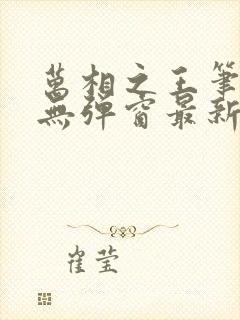 萬相之王筆
無彈窗最新
崔莹